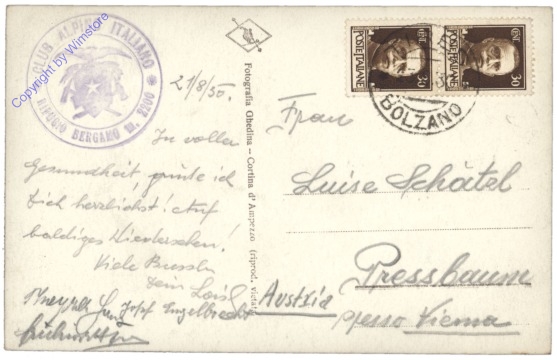 CLUB ALPINO ITALIANO
RIFUGIO BERGAMO M. 2200
Copyright by Wimstore
21/8/35.
In voller
Gesundheit, grüße ich
Dich herzlichst! Auf
baldiges Wiedersehen!
Viele Busseln
Dein
Josef Engelbrecht
Fotografia Ghedina - Cortina d'Ampezzo (riprod. vietata)
POSTE ITALIANE CENT 30
POSTE ITALIANE CENT 30
BOLZANO
Frau
Luise Schätzl
Pressbaum
presso Vienna
Austria